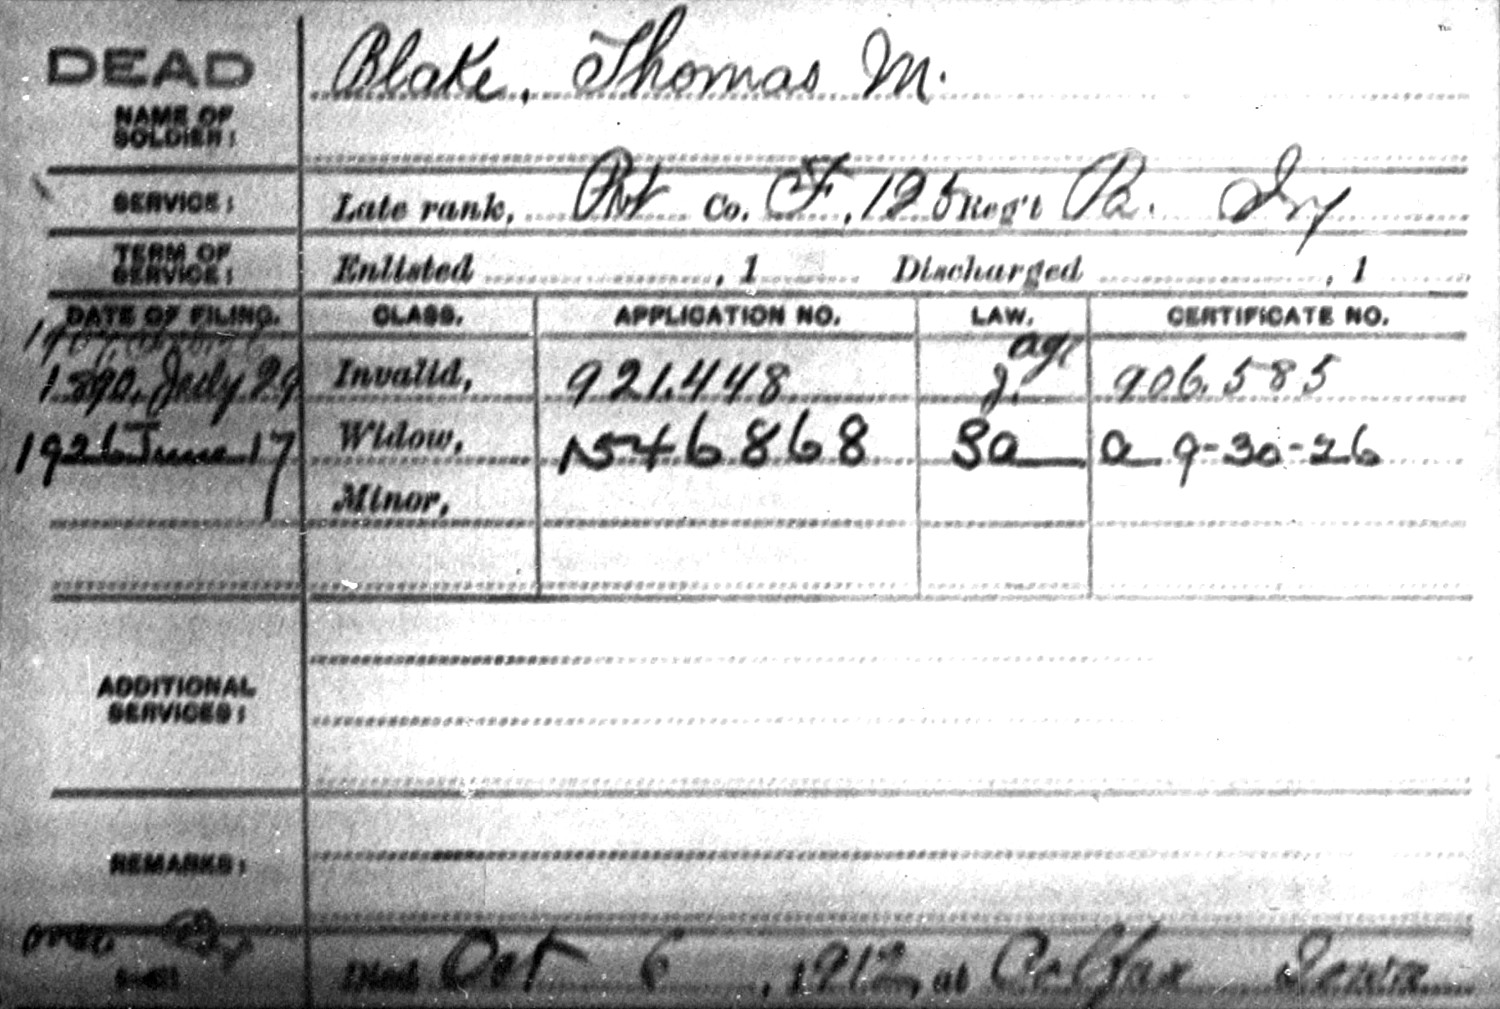 DEAD
Blake, Thomas M.
NAME OF
SOLDIER:
SERVICE: Late rank, Pvt Co. F, 125 Reg't Pa. Inf
TERM OF
SERVICE: Enlisted , 1 Discharged , 1
DATE OF FILING. CLASS. APPLICATION NO. LAW. CERTIFICATE NO.
1907 age
1890, July 29 Invalid, 921.448 J. 906.585
1926 June 17 Widow, 1546868 Sa a 9-30-26
Minor,
ADDITIONAL
SERVICES:
REMARKS:
Died Oct 6, 1912, at Colfax Iowa